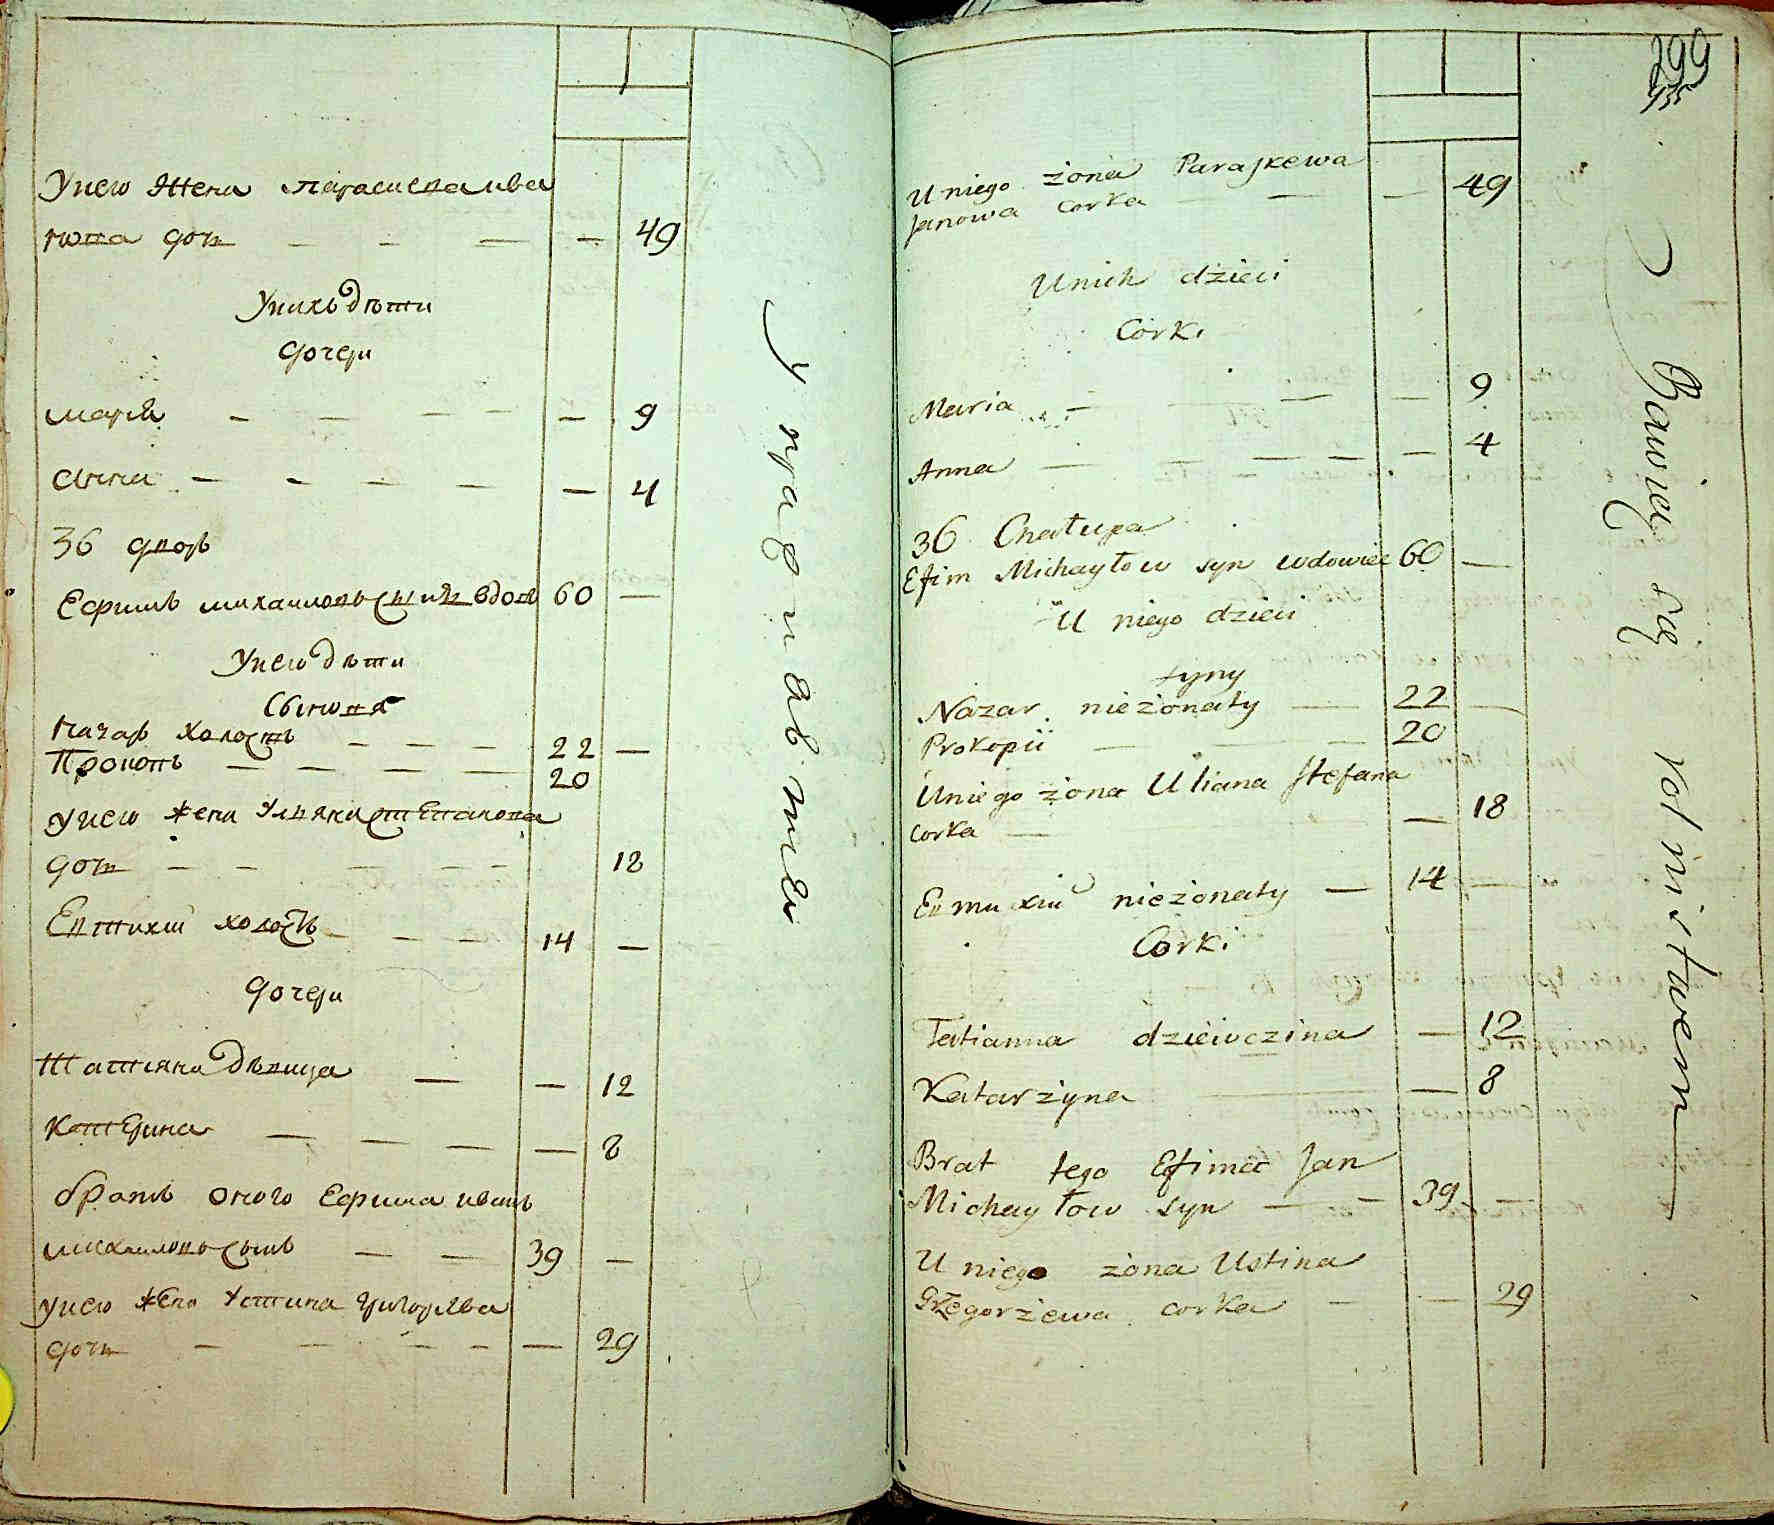 У него жена Параскева Ива
нова дочь — — — — 49
У нихъ дѣти
дочери
Марія — — — — — 9
Анна — — — — — 4
36 дворъ
Ефимъ Михаиловъ сынъ вдовъ 60 —
У него дѣти
Сыновя
Назаръ холостъ — — — 22 —
Прокопъ — — — — 20
У него жена Ульяна Степанова
дочь — — — — 18
Евтихии холостъ — — — 14 —
дочери
Татіяна дѣвица — — 12
Катерина — — — — 8
братъ оного Ефима Иванъ
Михаиловъ сынъ — — 39 —
У него жена Устина Григориева
дочь — — — — — 29
Управителі
299
U niego żona Paraskewa
Janowa corka — — — 49
U nich dzieci
Córki
Maria — — — 9
Anna — — — — — 4
36 Chałupa
Efim Michayłow syn wdowiec 60 —
U niego dzieci
syny
Nazar nieżonaty — 22 —
Prokopii — — — 20
U niego żona Uliana Stefana
corka — — 18
Евтихій nieżonaty — 14 —
Corki
Tatianna dzieiwczina — 12
Katarzyna — — 8
Brat tego Efima Jan
Michayłow syn — — 39 —
U niego żona Ustina
Grzegorzewa corka — — 29
Bawią się rolnistwem